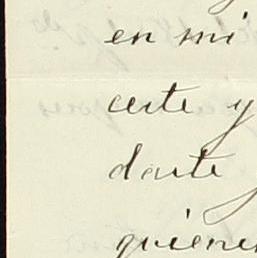 en mi
certe y
darte
quienes